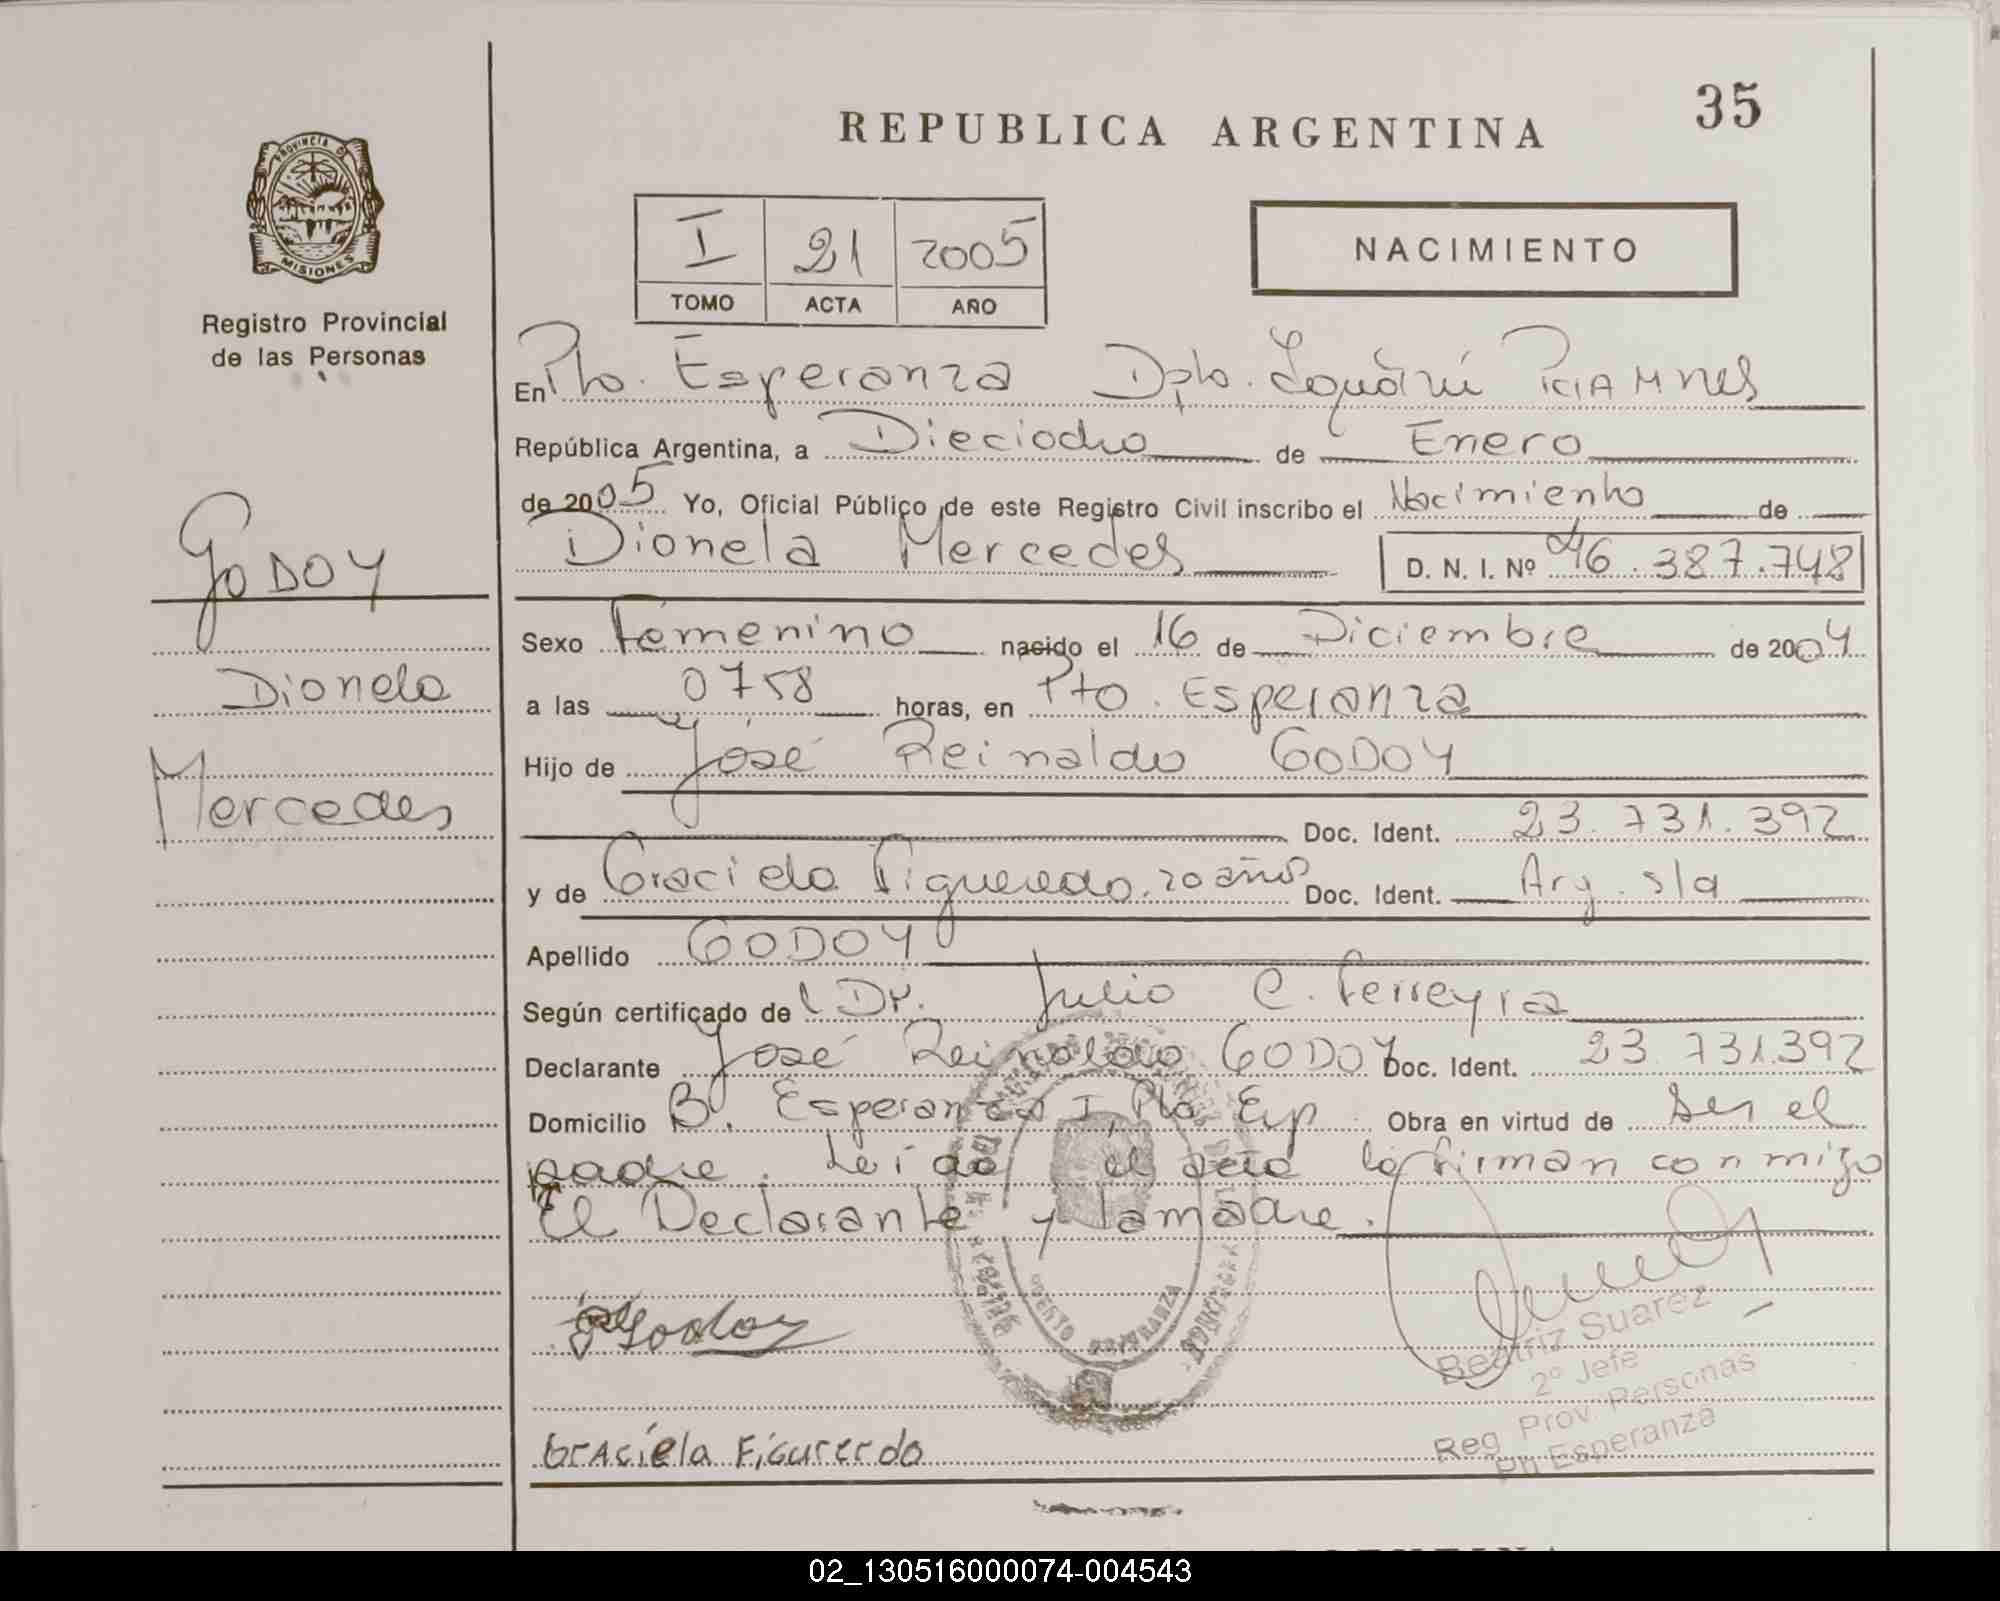 35
REPUBLICA ARGENTINA
PROVINCIA DE
MISIONES
Registro Provincial
de las Personas
I 21 2005
TOMO ACTA AÑO
NACIMIENTO
En Pto. Esperanza Dpto. Iguazú Pcia Mnes
República Argentina, a Dieciocho de Enero
de 2005 Yo, Oficial Público de este Registro Civil inscribo el Nacimiento de
Dionela Mercedes D. N. I. Nº 46.387.748
GODOY
Dionela
Mercedes
Sexo Femenino nacido el 16 de Diciembre de 2004
a las 0758 horas, en Pto. Esperanza
Hijo de José Reinaldo GODOY
Doc. Ident. 23.731.392
y de Graciela Figueredo. 20 años Doc. Ident. Arg. s/a
Apellido GODOY
Según certificado de l Dr. Julio C. Ferreyra
Declarante José Reinaldo GODOY Doc. Ident. 23.731.392
Domicilio B. Esperanza I, Pto Esp Obra en virtud de ser el
padre. Leído el acta la firman conmigo
El Declarante y la madre.
Godoy
Beatriz Suarez
2º Jefe
Reg Prov. Personas
Esperanza
PUERTO ESPERANZA
Graciela Figueredo
02_130516000074-004543